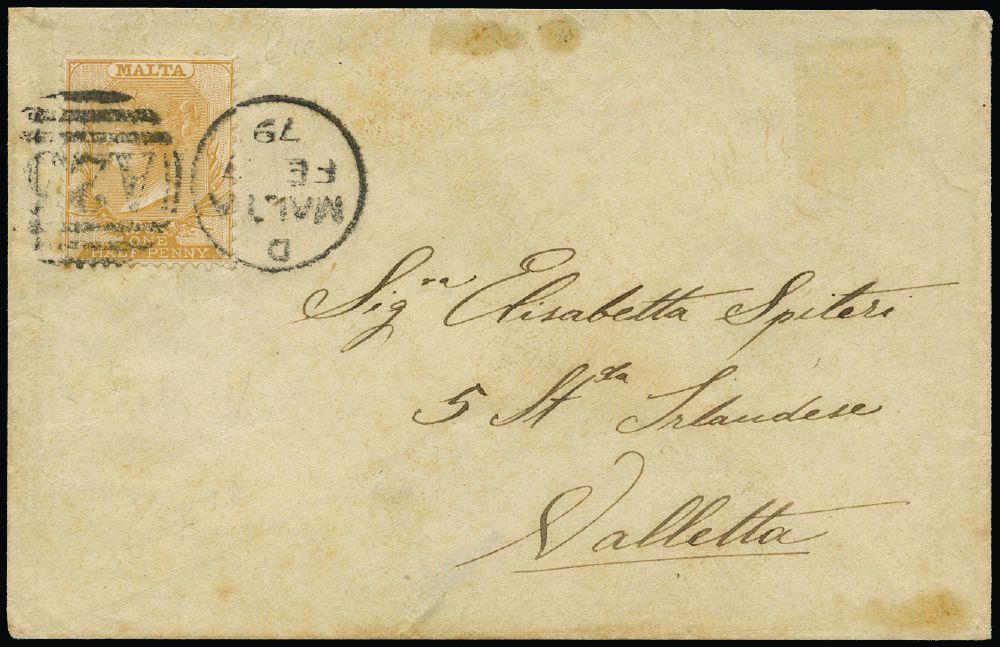 MALTA
ONE
HALF-PENNY
A25
D
MALTA
FE
79
Sigra Elisabetta Spiteri
5 Stda Irlandese
Valletta